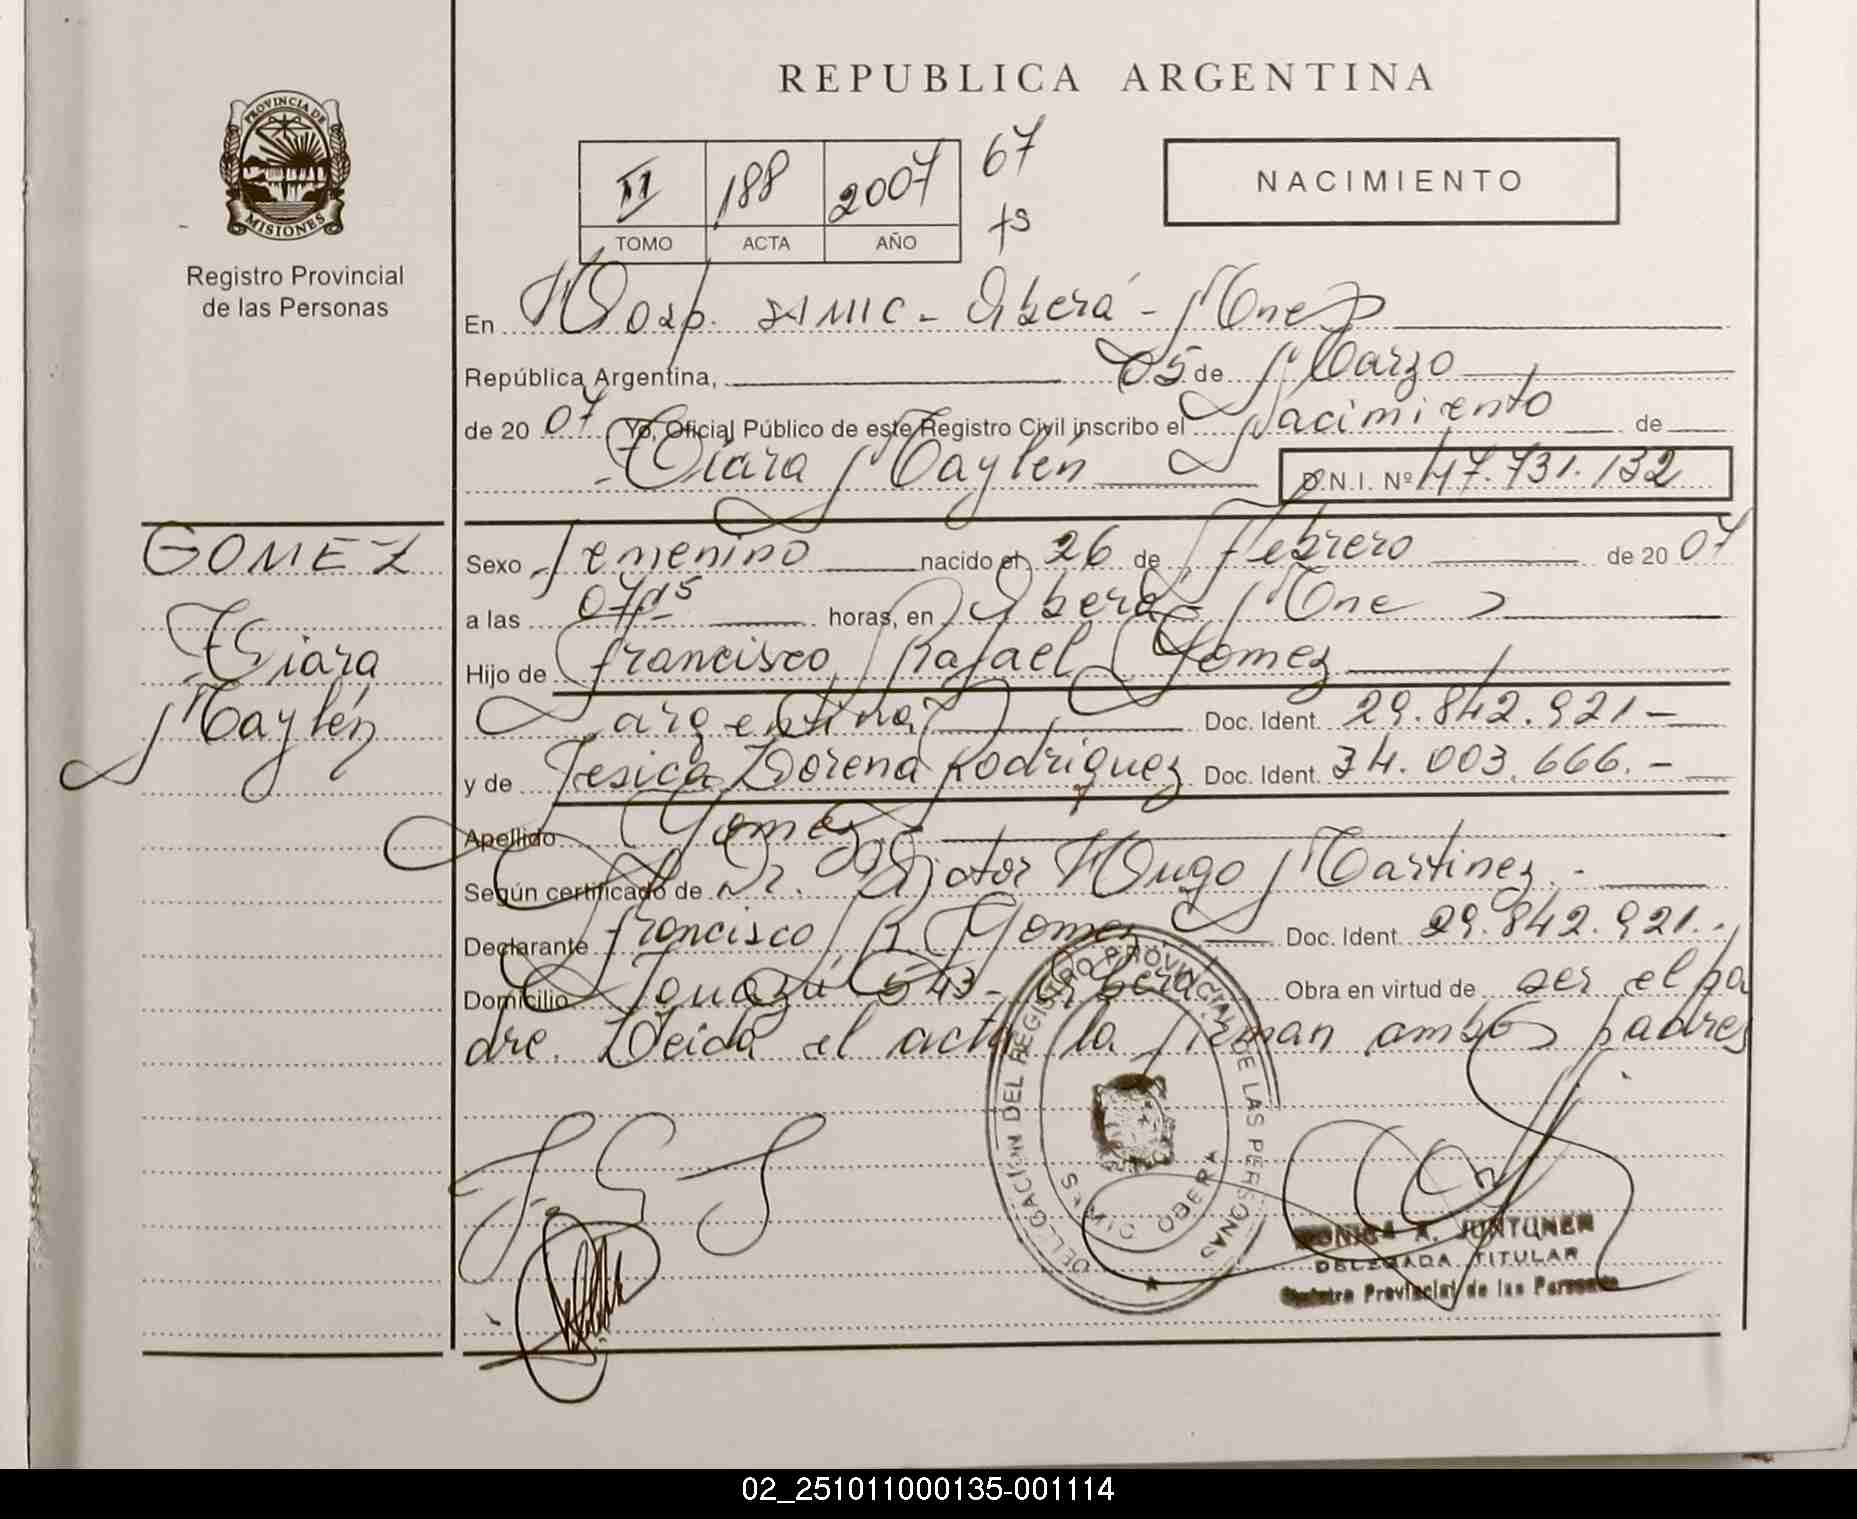 REPUBLICA ARGENTINA
PROVINCIA DE
MISIONES
Registro Provincial
de las Personas
II 188 2007 67
TOMO ACTA AÑO fs
NACIMIENTO
En Hosp. SAMIC - Oberá - Mnes
República Argentina, 05 de Marzo
de 20 07 Yo, Oficial Público de este Registro Civil inscribo el Nacimiento de
Tiara Maylén D.N.I. Nº 47.731.132
GOMEZ
Tiara
Maylén
Sexo femenino nacido el 26 de febrero de 20 07
a las 07,15 horas, en Oberá - Mnes
Hijo de Francisco Rafael Gomez
argentina Doc. Ident. 29.842.921-
y de Jesica Lorena Rodriguez Doc. Ident. 34.003.666.-
Apellido Gomez
Según certificado de Dr. Victor Hugo Martinez.-
Declarante Francisco R Gomez Doc. Ident. 29.842.921.-
Domicilio Iguazú 543 - Oberá Obra en virtud de ser el pa
dre. Leida el acta la firman ambos padres
DELEGACIÓN DEL REGISTRO PROVINCIAL DE LAS PERSONAS
OBERA
MONICA A. JUNTUNEN
DELEGADA TITULAR
Registro Provincial de las Personas
02_251011000135-001114